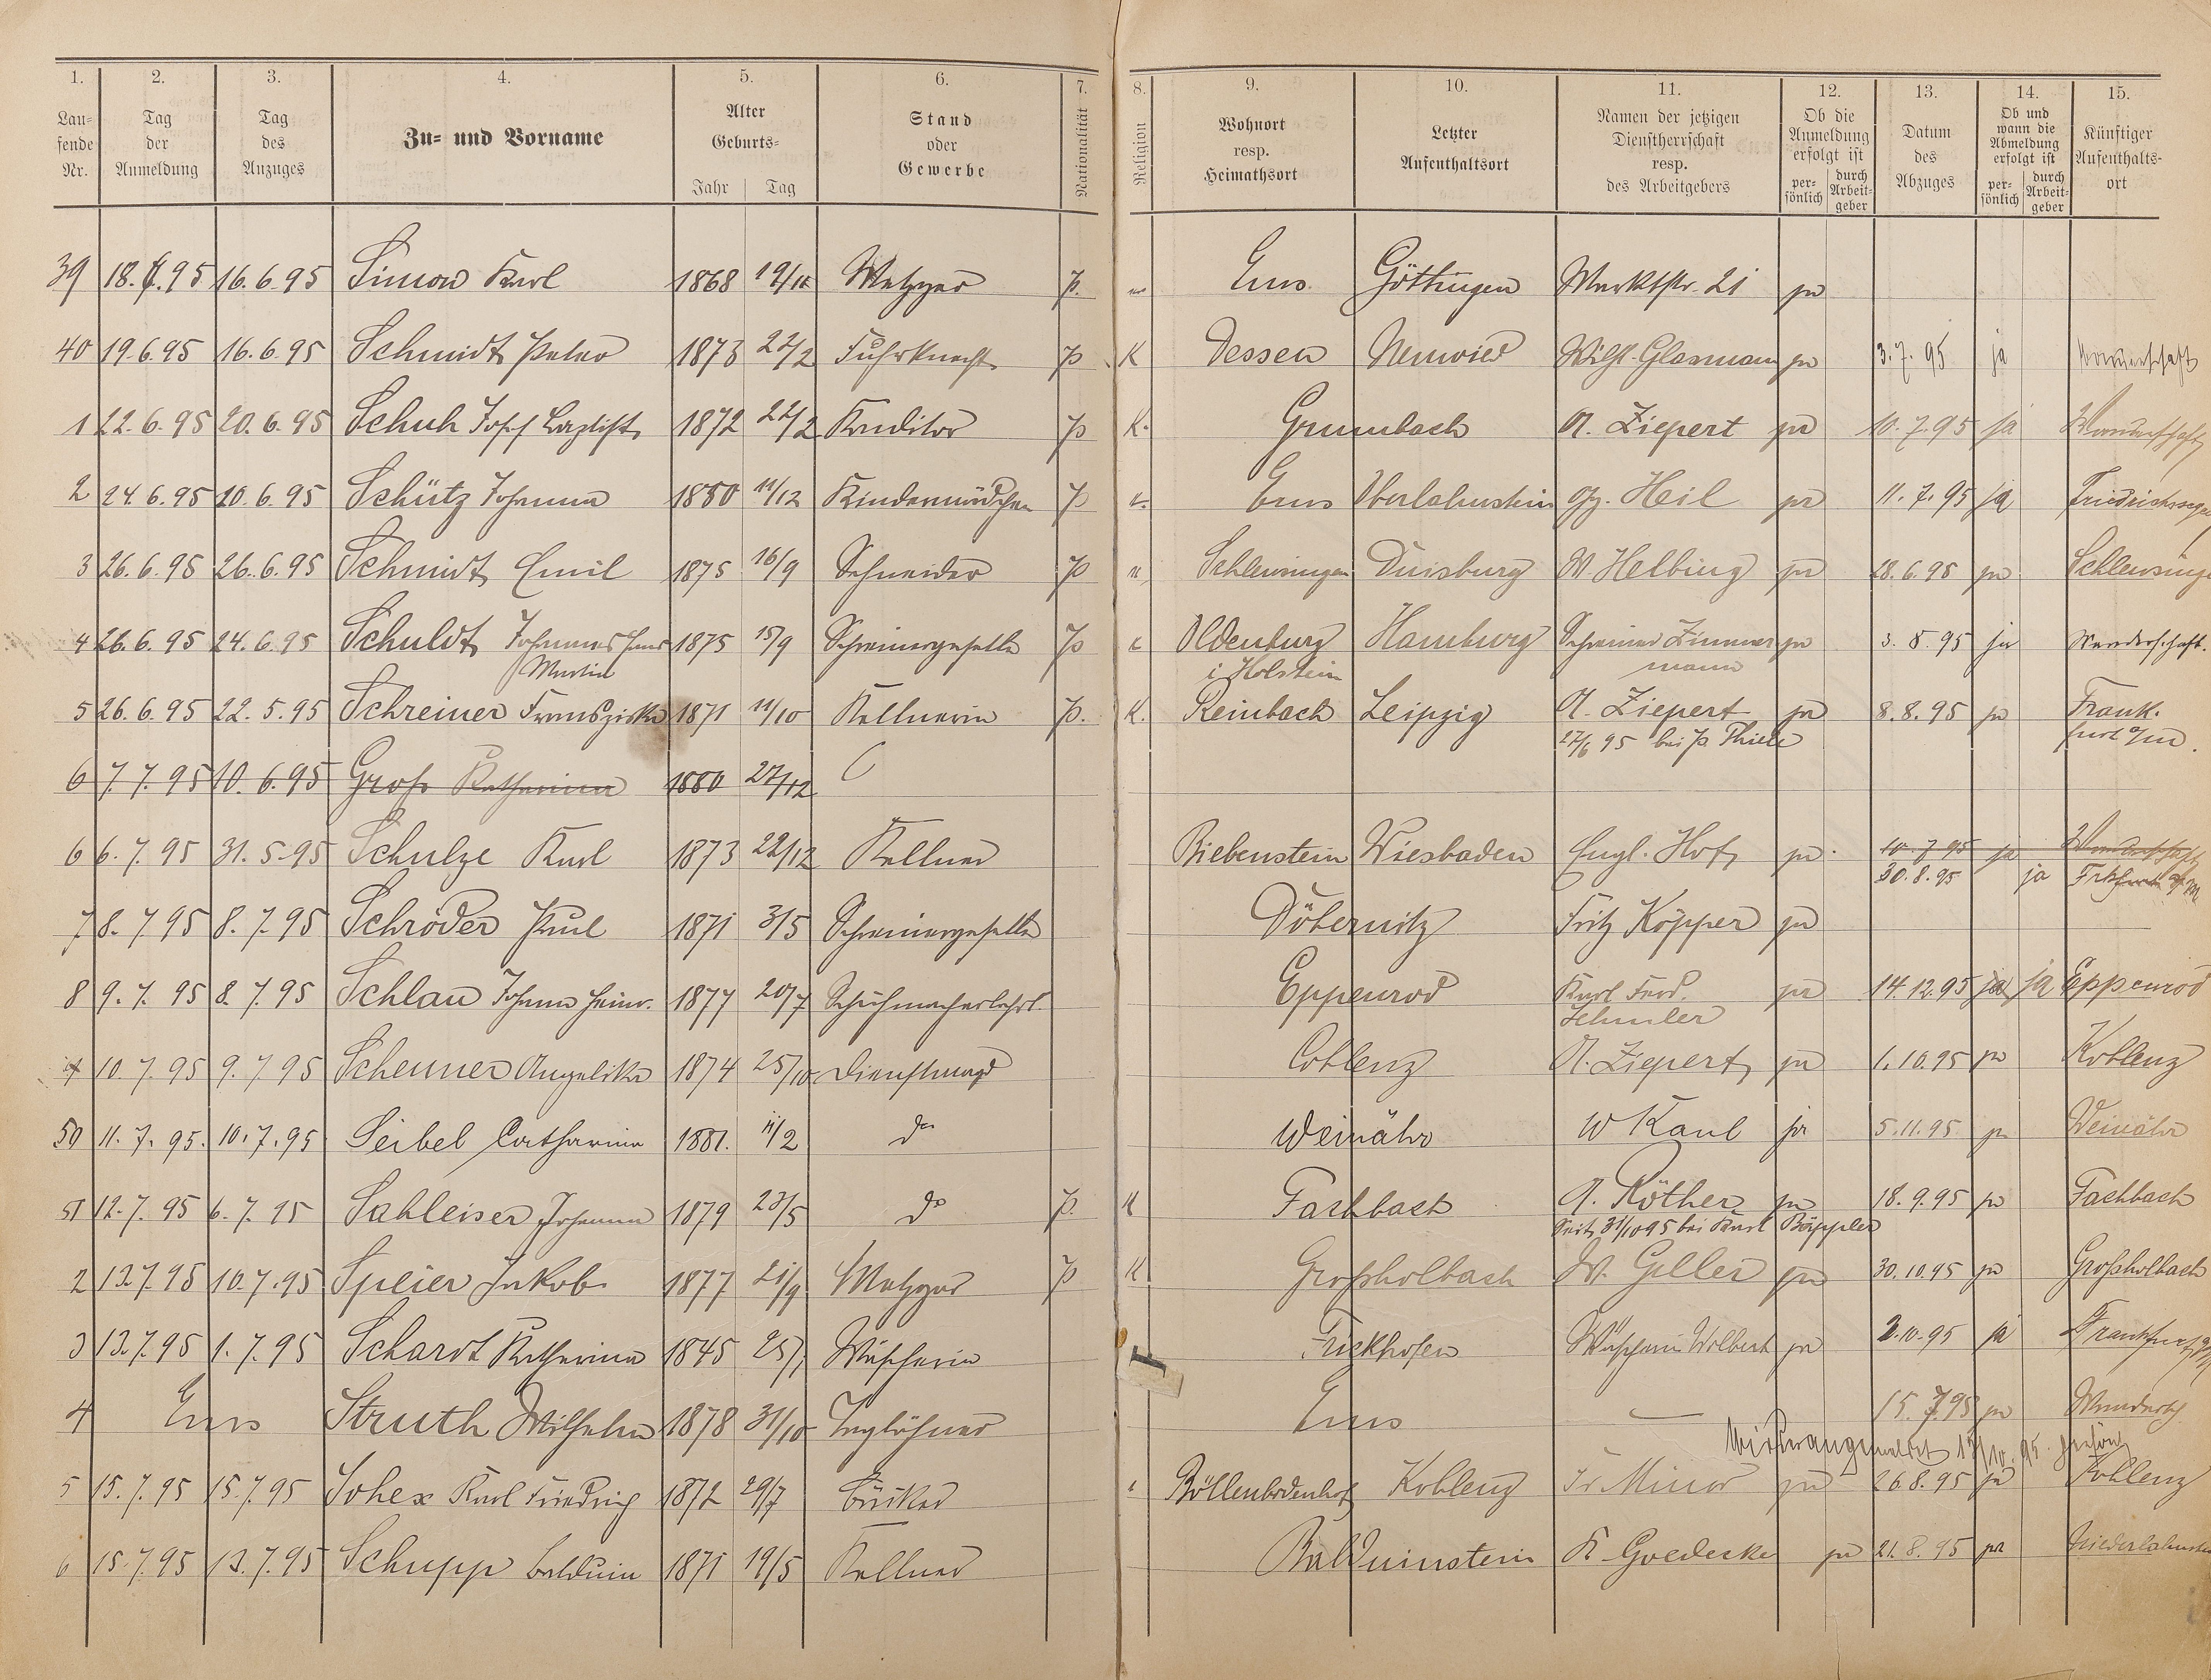 1. 2. 3. 4. 5. 6. 7. 8. 9. 10. 11. 12. 13. 14. 15.
Laufende Nr. Tag der Anmeldung Tag des Anzuges Zu- und Vorname Alter Geburts- Jahr Tag Stand oder Gewerbe Nationalität Religion Wohnort resp. Heimathsort Letzter Aufenthaltsort Namen der jetzigen Dienstherrschaft resp. des Arbeitgebers Ob die Anmeldung erfolgt ist persönlich durch Arbeitgeber Datum des Abzuges Ob und wann die Abmeldung erfolgt ist persönlich durch Arbeitgeber Künftiger Aufenthaltsort
39 18.6.95 16.6.95 Simon Karl 1868 19/10 Metzger P. Ems Göttingen Marktstr. 21 ja
40 19.6.95 16.6.95 Schmidt Peter 1873 22/2 Fuhrknecht P K Dessen Neuwied Wilh. Glasmann ja 3.7.95 ja Wanderschaft
1 22.6.95 20.6.95 Schuh Josef Baptist 1872 22/2 Konditor P K. Grumbach A. Ziepert ja 10.7.95 ja Wanderschaft
2 24.6.95 10.6.95 Schütz Johanna 1880 11/12 Kindermädchen P Ems Oberlahnstein Gg. Heil ja 11.7.95 ja Friedrichssegen
3 26.6.95 26.6.95 Schmidt Emil 1875 16/9 Schneider P Schleusingen Duisburg W Helbing ja 28.6.95 ja Schleusingen
4 26.6.95 24.6.95 Schuldt Johannes Hans 1875 15/9 Schreinergeselle P Oldenburg Hamburg Schreiner Zimmer ja 3.8.95 ja Wanderschaft.
Martin i Holstein mann
5 26.6.95 22.5.95 Schreiner Franziska 1871 11/10 Kellnerin P. K. Reinbach Leipzig A. Ziepert ja 8.8.95 ja Frank.
27/6 95 bei P. Thiele furt a/M.
6 7.7.95 10.6.95 Groß Katharina 1880 27/12
6 6.7.95 31.5.95 Schulze Karl 1873 22/12 Kellner Biebenstein Wiesbaden Engl. Hof ja 10.7.95 ja Wanderschaft
30.8.95 ja Frkfurt a/M
7 8.7.95 8.7.95 Schröder Paul 1871 3/5 Schreinergeselle Döbernitz Fritz Köpper ja
8 9.7.95 8.7.95 Schlau Johann Heinr. 1877 20/7 Schuhmacherlehrl. Eppenrod Karl Ferd. ja 14.12.95 ja ja Eppenrod
Schuler
10.7.95 9.7.95 Scheuner Angelika 1874 25/10 Dienstmagd Coblenz A. Ziepert ja 1.10.95 ja Koblenz
50 11.7.95. 10.7.95 Seibel Catharina 1881. 11/2 do Weinähr W Kaul ja 5.11.95 ja Weinähr
51 12.7.95 6.7.95 Sahleiser Johanna 1879 23/5 do P. K Fachbach A. Röther ja 18.9.95 ja Fachbach
Seit 31/10 95 bei Karl Böppler
2 12.7.95 10.7.95 Speier Jakob 1877 21/9 Metzger P K Großholbach W. Geller ja 30.10.95 ja Großholbach
3 13.7.95 1.7.95 Schardt Katharina 1845 25/7 Wäscherin Frickhofen Wäscherin Wolbert ja 2.10.95 ja Frankfurt
4 Ems Struth Wilhelm 1878 31/10 Taglöhner Ems — 15.7.95 ja
Wiederangemeldet 15/10.95.
5 15.7.95 15.7.95 Sohex Karl Friedrich 1872 29/7 Bäcker Böllenbodenhof Koblenz Fr Minor ja 26.8.95 ja Koblenz
6 15.7.95 13.7.95 Schupp Balduin 1871 19/5 Kellner Balduinstein K Goedecke ja 21.8.95 ja Niederlahnstein